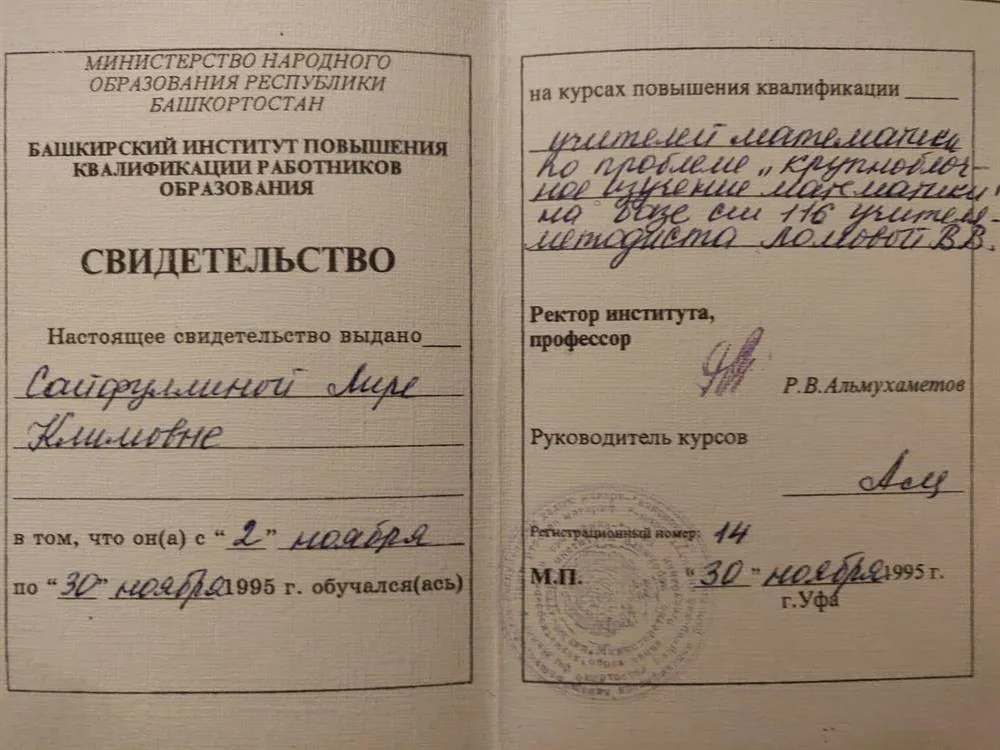 МИНИСТЕРСТВО НАРОДНОГО
ОБРАЗОВАНИЯ РЕСПУБЛИКИ
БАШКОРТОСТАН
БАШКИРСКИЙ ИНСТИТУТ ПОВЫШЕНИЯ
КВАЛИФИКАЦИИ РАБОТНИКОВ
ОБРАЗОВАНИЯ
СВИДЕТЕЛЬСТВО
Настоящее свидетельство выдано
Сайфуллиной Лире
Климовне
в том, что он(а) с “2” ноября
по “30” ноября 1995 г. обучался(ась)
на курсах повышения квалификации
учителей математики
по проблеме „крупноблоч-
ное изучение математики"
на базе сш 116 учителя-
методиста Ломовой В.В.
Ректор института,
профессор
Р.В.Альмухаметов
Руководитель курсов
Регистрационный номер: 14
М.П. “30” ноября 1995 г.
г.Уфа